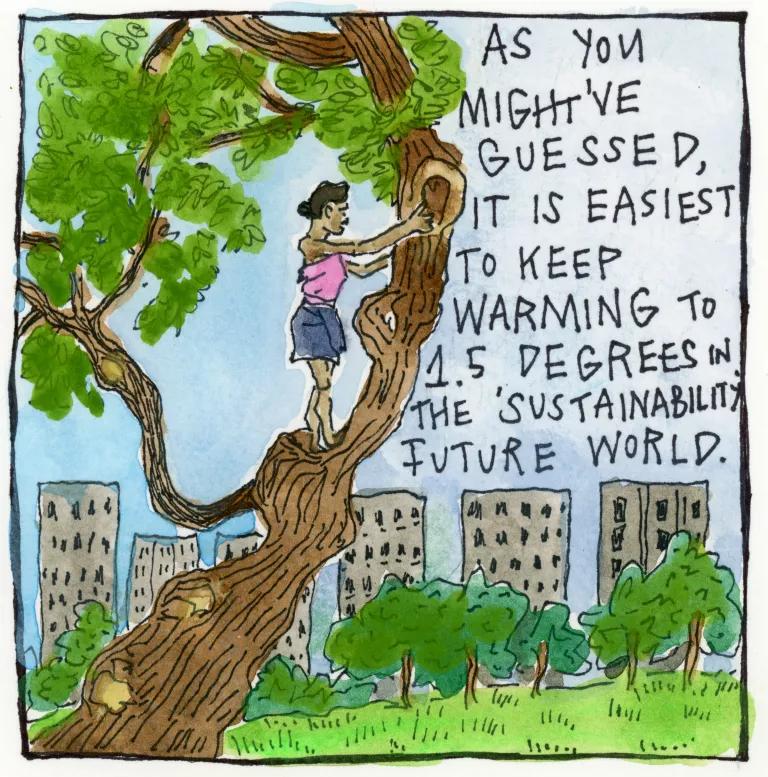 AS YOU
MIGHT'VE
GUESSED,
IT IS EASIEST
TO KEEP
WARMING TO
1.5 DEGREES IN
THE 'SUSTAINABILITY'
FUTURE WORLD.